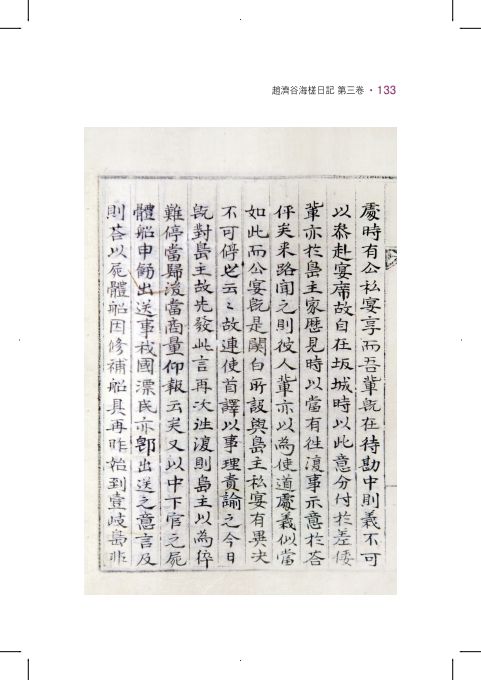 趙濟谷海槎日記 第三卷 · 133
處時有公私宴享而吾輩旣在待勘中則義不可
以恭赴宴席故自在坂城時以此意分付於差倭
輩亦於島主家歷見時以當有往復事示意於答
伻矣来路聞之則彼人輩亦以為使道處義似當
如此而公宴旣是関白所設與島主私宴有異决
不可停也云云故連使首譯以事理責諭之今日
旣對島主故先發此言再次往復則島主以為倅
難停當歸後當商量仰報云矣又以中下官之屍
體船申飭出送事我國漂民亦卽出送之意言及
則答以屍體船因修補船具再昨始到壹岐島非